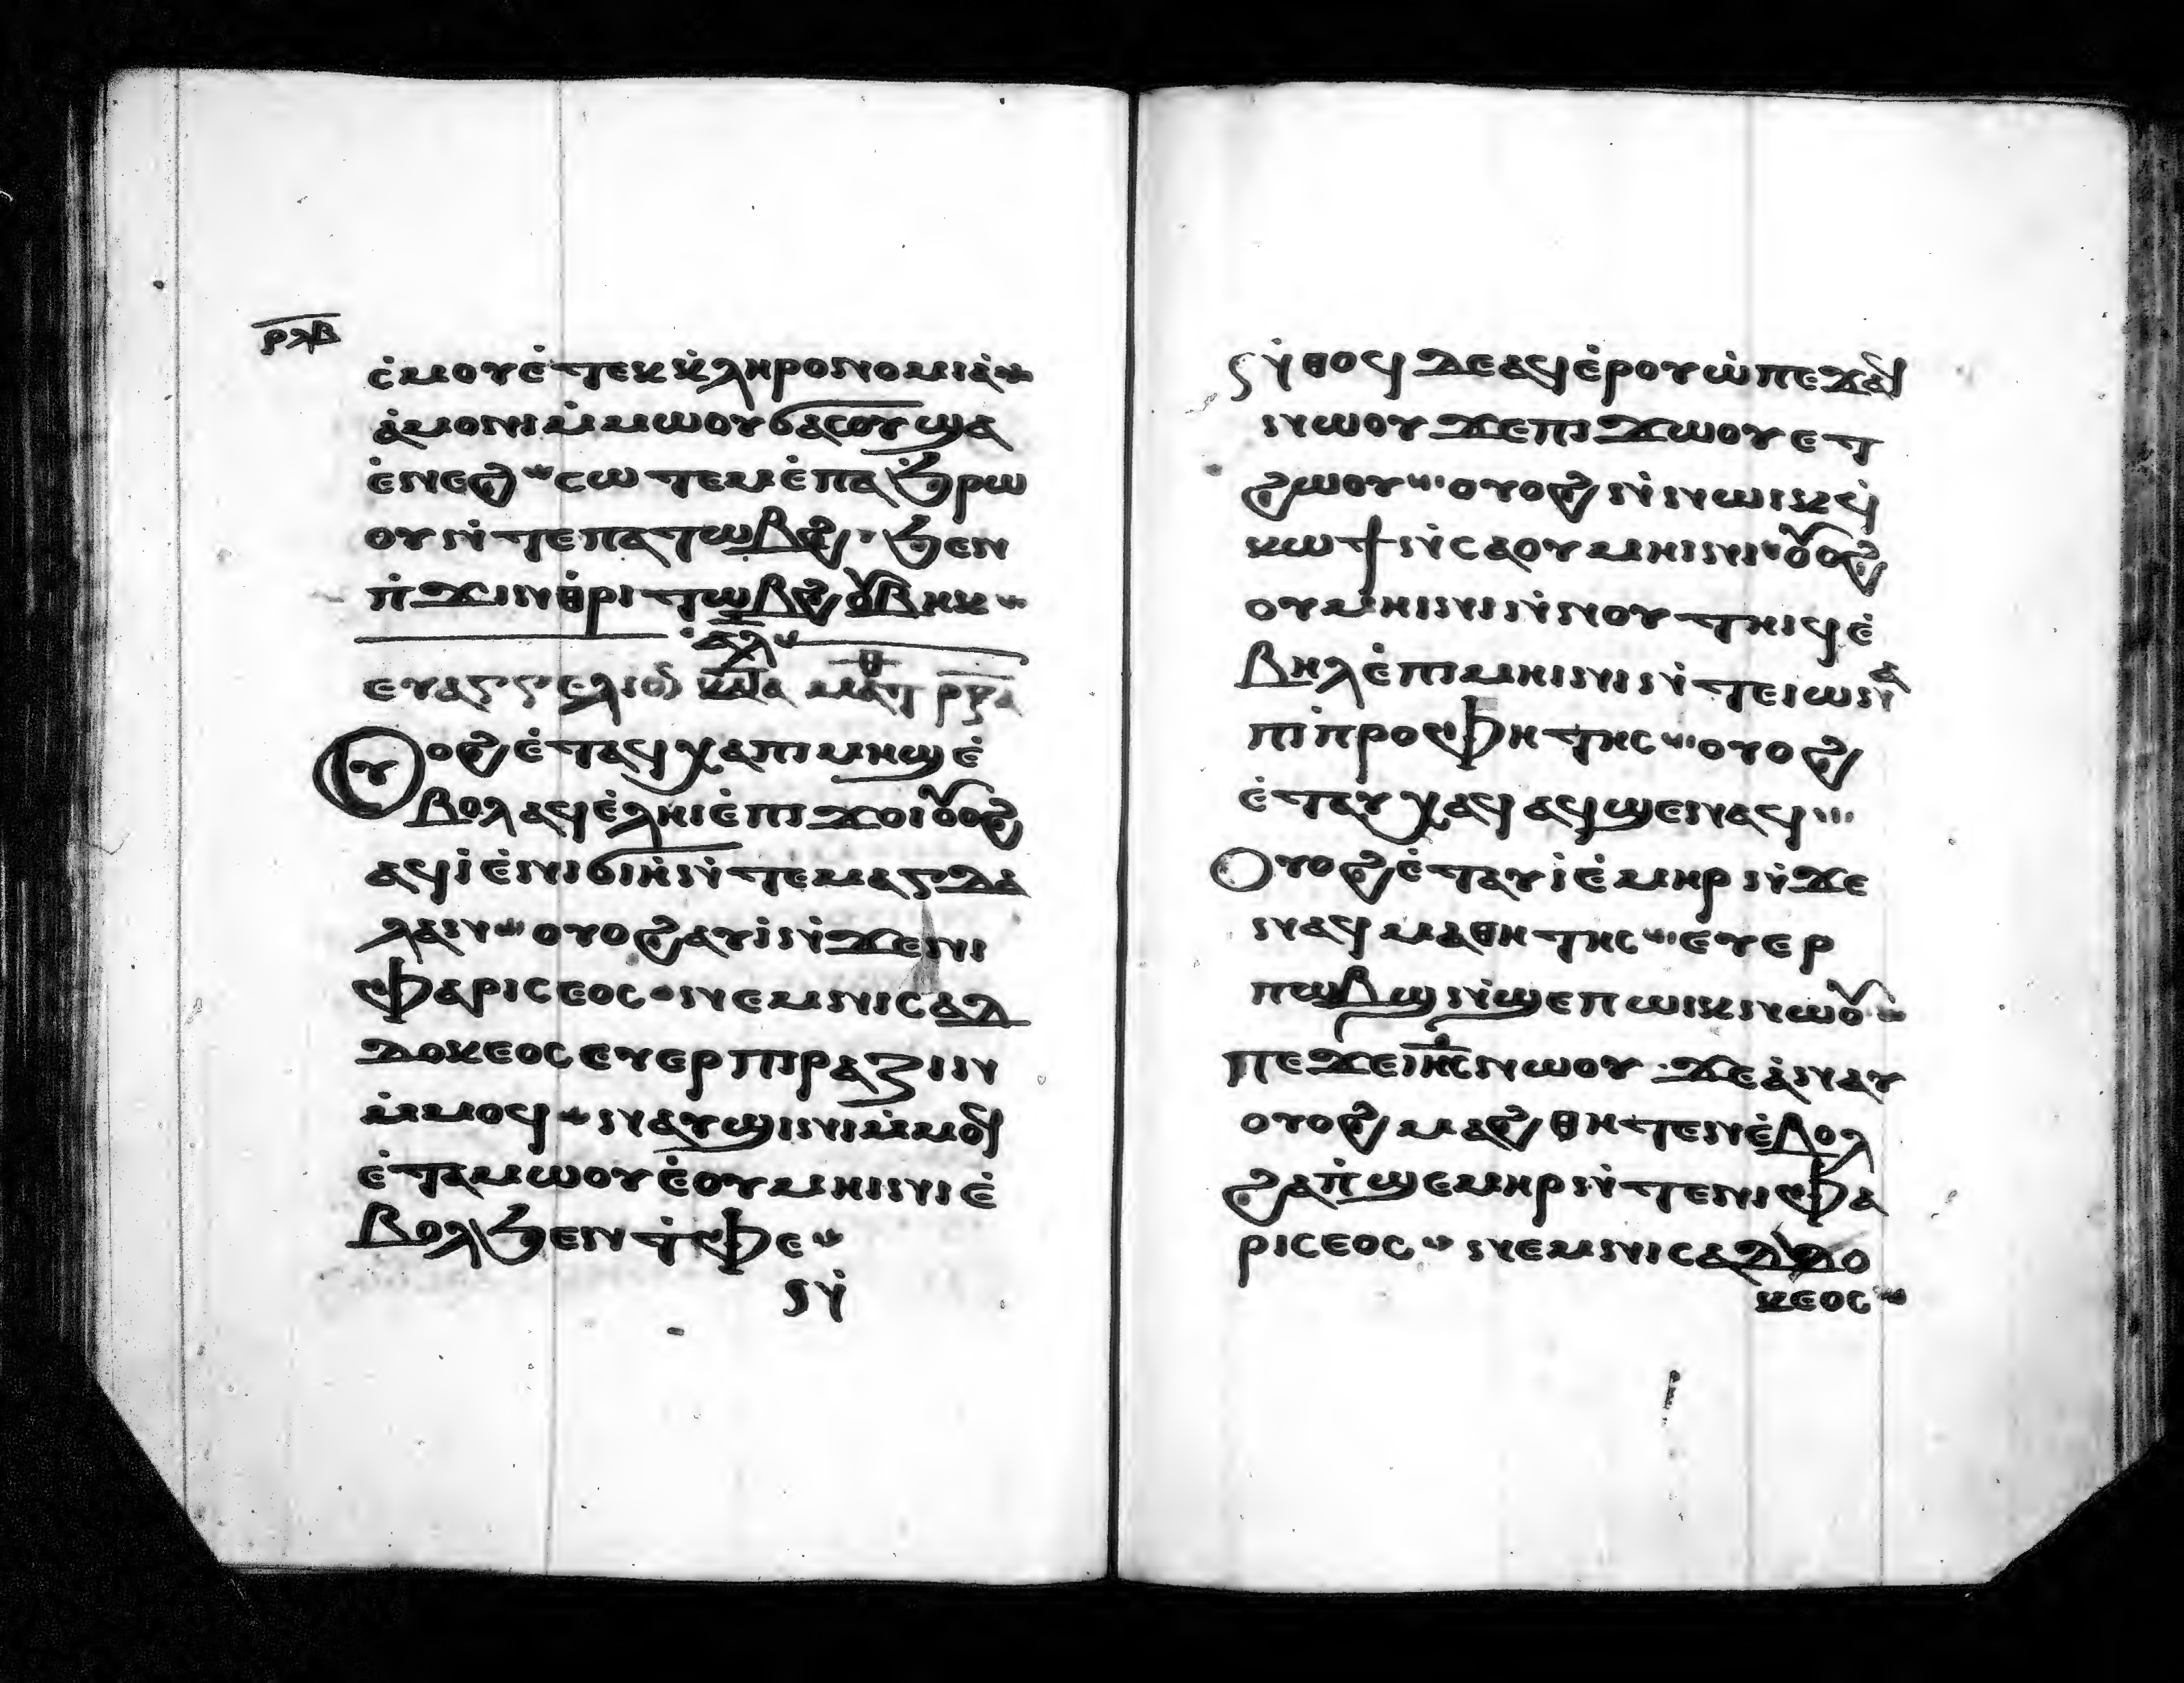 ⲣⲗⲃ
ⲥ̇ⲙⲟⲩⲉ̇ⲧⲉⲕⲕ̇ⲗⲏⲣⲟⲛⲟⲙⲓⲁ̇
ⲁ̇ⲙⲟⲛⲓⲙ̇ⲙⲱⲟⲩϭⲁⲥⲟⲩϣⲁ
ⲉ̇ⲛⲉϩ ⲥⲱⲧⲉⲙⲉ̇ⲡⲁϧ̇ⲣⲱ
ⲟⲩⲛ̇ⲧⲉⲡⲁⲧⲱⲃϩ ϧⲉⲛ
ⲡ̇ϫⲓⲛⲑ̇ⲣⲓⲧⲱⲃϩⲟⲩⲃⲏⲕ
ⲁⲗ
ⲉⲩⲁⲅⲅⲉⲗⲓⲟⲛ ⲕⲁⲧⲁ ⲙⲁⲧⲑ ⲣⲝⲁ
ⲟⲩⲟϩⲉ̇ⲧⲁϥⲭⲁⲡⲓⲙⲏϣⲉ̇
ⲃⲟⲗⲁϥⲉ̇ⲗⲏⲓⲉ̇ⲡⲓϫⲟⲓⲟⲩⲟϩ
ⲁϥⲓ̇ⲉ̇ⲛⲓϭⲓⲏ̇ⲛ̇ⲧⲉⲙⲁⲅⲇⲁ
ⲗⲁⲛ ⲟⲩⲟϩⲁⲩⲓ̇ⲛ̇ϫⲉⲛⲓ
ⲫⲁⲣⲓⲥⲉⲟⲥ ⲛⲉⲙⲛⲓⲥⲁⲇ
ⲇⲟⲕⲉⲟⲥⲉⲩⲉⲣⲡⲓⲣⲁⲍⲓⲛ
ⲙ̇ⲙⲟϥ ⲛⲁⲩϣⲓⲛⲓⲙ̇ⲙⲟϥ
ⲉ̇ⲧⲁⲙⲱⲟⲩⲉ̇ⲟⲩⲙⲏⲓⲛⲓⲉ̇
ⲃⲟⲗϧⲉⲛⲧ̇ⲫⲉ
ⲛ̇
ⲛ̇ⲑⲟϥⲇⲉⲁϥⲉ̇ⲣⲟⲩⲱ̇ⲡⲉϫⲁϥ
ⲛⲱⲟⲩϫⲉⲡⲓϫⲱⲟⲩⲉⲧ
ϩⲱⲟⲩ ⲟⲩⲟϩⲛ̇ⲛⲱⲓⲕϥ̇
ⲕⲱϯⲛ̇ⲥⲁⲟⲩⲙⲏⲓⲛⲓ ⲟⲩⲟϩ
ⲟⲩⲙⲏⲓⲛⲓⲛ̇ⲛⲟⲩⲧⲏⲓϥⲉ̇
ⲃⲏⲗⲉ̇ⲡⲓⲙⲏⲓⲛⲓⲛ̇ⲧⲉⲓⲱⲛⲁ
ⲡⲓⲡ̇ⲣⲟⲫⲏⲧⲏⲥ ⲟⲩⲟϩ
ⲉ̇ⲧⲁⲩⲭⲁϥⲁϥϣⲉⲛⲁϥ
ⲟⲩⲟϩⲉ̇ⲧⲁⲩⲓ̇ⲉ̇ⲙⲏⲣⲛ̇ϫⲉ
ⲛⲁϥⲙⲁⲑⲏⲧⲏⲥ ⲉⲩⲉⲣ
ⲡⲱⲃϣⲛ̇ϣⲉⲡⲱⲓⲕⲛⲱⲟⲩ
ⲡⲉϫⲉⲓⲏⲥⲛⲱⲟⲩ ϫⲉⲁ̇ⲛⲁⲩ
ⲟⲩⲟϩⲙⲁϩⲑⲏⲧⲉⲛⲉ̇ⲃⲟⲗ
ϩⲁⲡ̇ϣⲉⲙⲏⲣⲛ̇ⲧⲉⲛⲓⲫⲁ
ⲣⲓⲥⲉⲟⲥ ⲛⲉⲙⲛⲓⲥⲁⲇⲇⲟ
ⲕⲉⲟⲥ